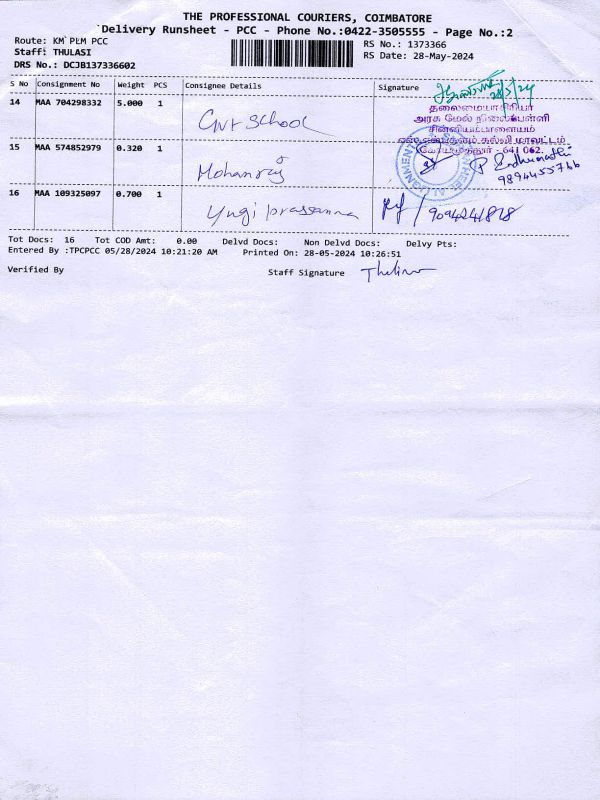 THE PROFESSIONAL COURIERS, COIMBATORE
Delivery Runsheet - PCC - Phone No.:0422-3505555 - Page No.:2
Route: KM PLM PCC
RS No.: 1373366
Staff: THULASI
RS Date: 28-May-2024
DRS No.: DCJB137336602
S No Consignment No Weight PCS Consignee Details Signature
28/5/24
14 MAA 704298332 5.000 1 Gvt School
தலைமையாசிரியர்
அரசு மேல் நிலைப்பள்ளி
சின்னியம்பாளையம்
641 062.
15 MAA 574852979 0.320 1 Mohanraj
9894455766
16 MAA 109325097 0.700 1 Yugi prassanna
9094241878
Tot Docs: 16 Tot COD Amt: 0.00 Delvd Docs: Non Delvd Docs: Delvy Pts:
Entered By :TPCPCC 05/28/2024 10:21:20 AM Printed On: 28-05-2024 10:26:51
Verified By Staff Signature